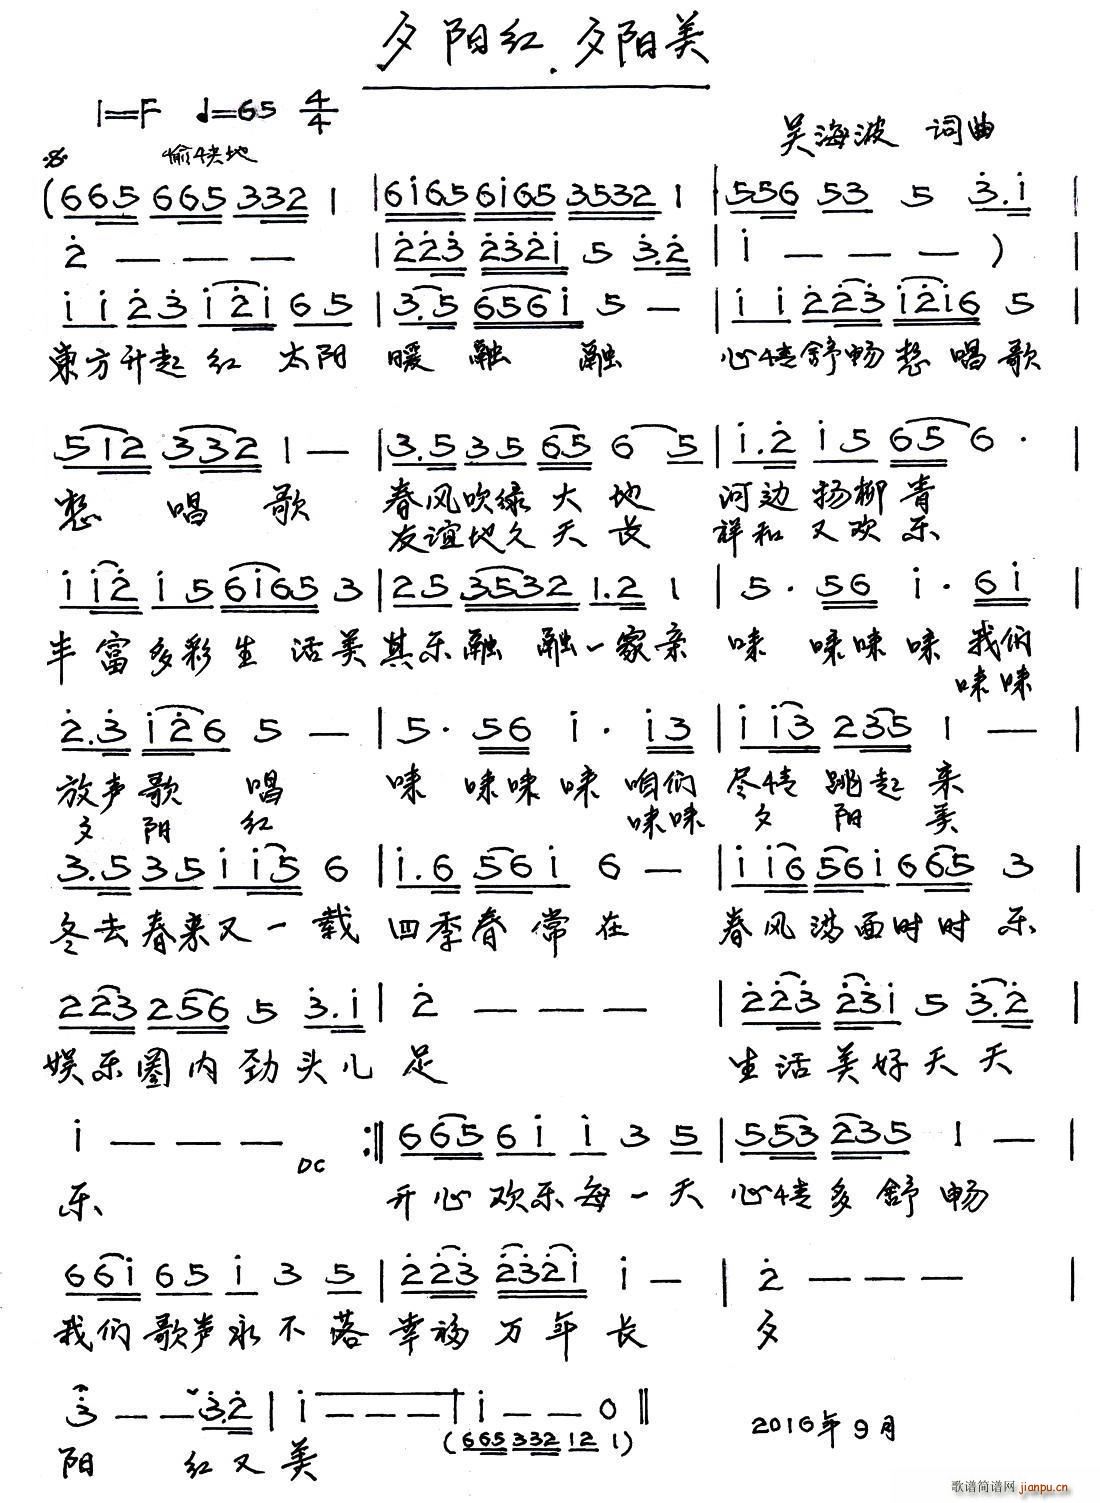 夕阳红.夕阳美
1=F ♩=65 4/4
吴海波 词曲
愉快地
(665 665 332 1 | 6i65 6i65 3532 1 | 556 53 5 3.i |
2 — — — | 223 2321 5 3.2 | i — — — ) |
i i 2 3 i2i 6 5 | 3.5 656i 5 — | i i 2 23 i2i6 5 |
東方升起红太阳 暖融融 心情舒畅想唱歌
512 332 1 — | 3.5 35 65 6 5 | i.2 i5 65 6 · |
想唱歌 春风吹绿大地 河边杨柳青
友谊地久天长 祥和又欢乐
i i2 i5 6i65 3 | 25 3532 1.2 1 | 5 · 56 i · 6i |
丰富多彩生活美 其乐融融一家亲 咪 咪咪咪 我们
咪咪
2.3 i26 5 — | 5 · 56 i · i3 | i i3 235 1 — |
放声歌唱 咪 咪咪咪 咱们 尽情跳起来
夕阳红 咪咪 夕阳美
3.5 35 i i5 6 | i.6 56i 6 — | i i6 56i 665 3 |
冬去春来又一载 四季春常在 春风满面时时乐
223 256 5 3.i | 2 — — — | 223 23i 5 3.2 |
娱乐圈内劲头儿足 生活美好天天
i — — — DC :‖ 665 6i i 3 5 | 553 235 1 — |
乐 开心欢乐每一天 心情多舒畅
66i 65 i 3 5 | 223 232i i — | 2 — — — |
我们歌声永不落 幸福万年长 夕
3 — — 3.2 | i — — — | i — — 0 ‖
(665 332 12 1)
2016年9月
阳 红又美
歌谱简谱网
jianpu.cn